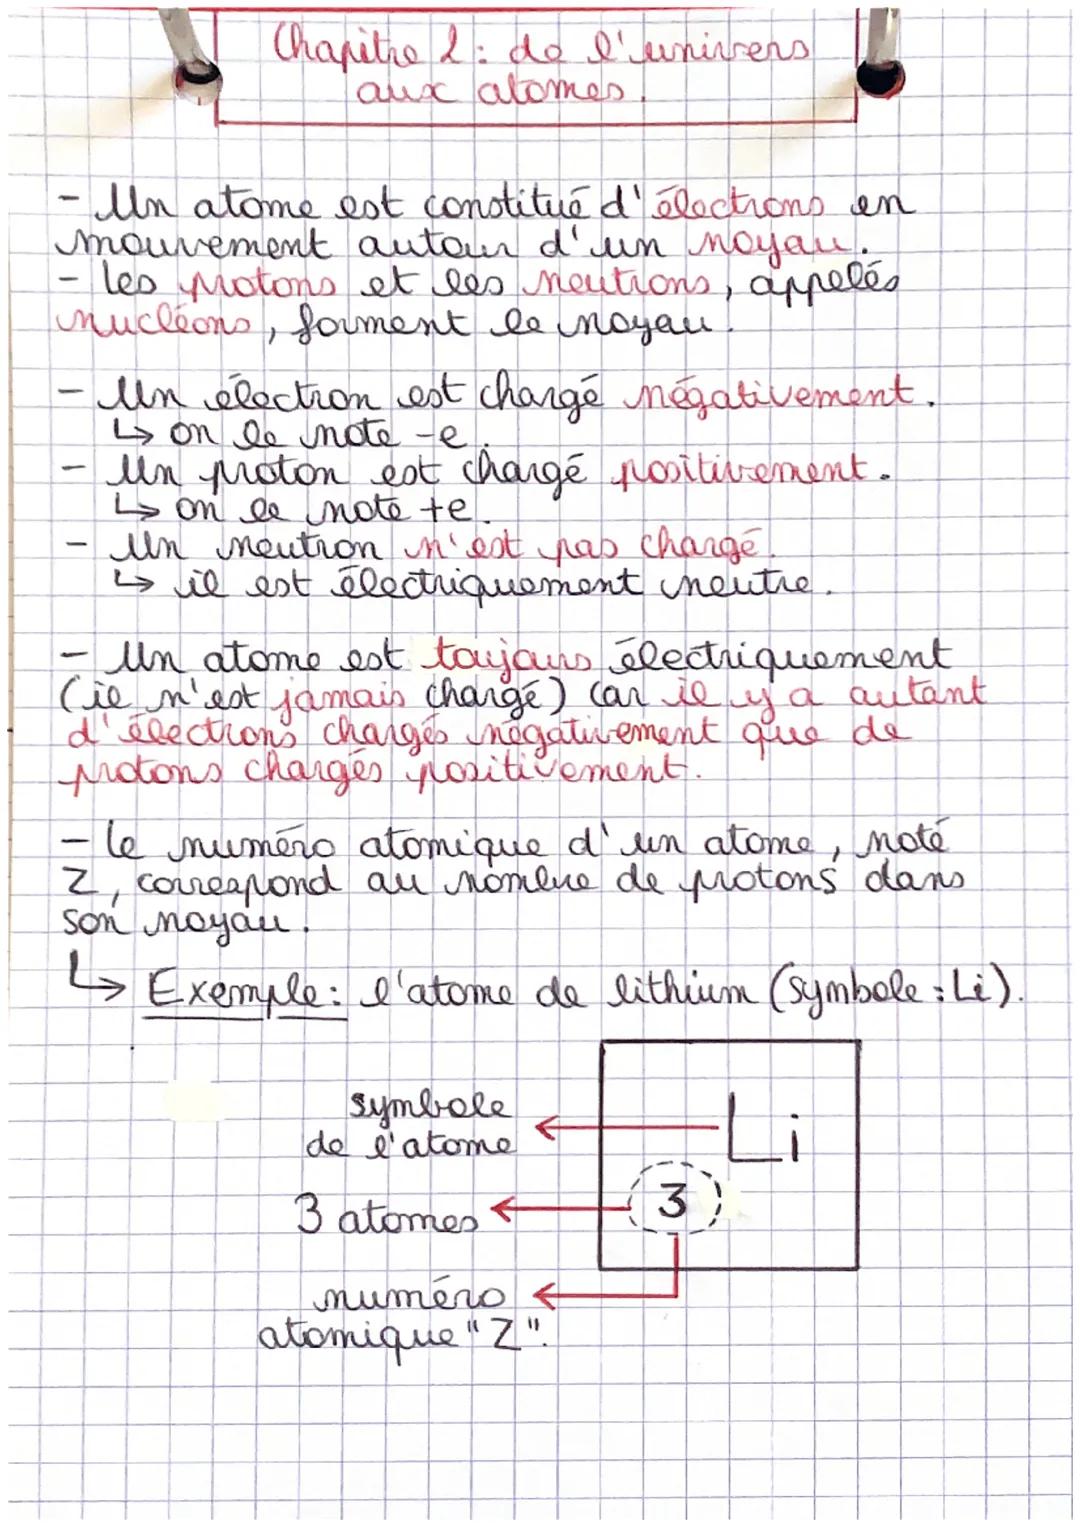 Chapitre 2 : de l'univers
aux atomes.
- Un atome est constitué d'électrons en
mouvement autour d'un noyau.
- Les protons et les neutrons, appelés
nucléons, forment le noyau.
- Un électron est chargé négativement.
↳ on le note -e.
- Un proton est chargé positivement.
↳ on le note +e.
- Un neutron n'est pas chargé.
↳ il est électriquement neutre.
- Un atome est toujours électriquement
(il n'est jamais chargé) car il y a autant
d'électrons chargés négativement que de
protons chargés positivement.
- Le numéro atomique d'un atome, noté
Z, correspond au nombre de protons dans
son noyau.
↳ Exemple : l'atome de lithium (symbole : Li).
symbole
de l'atome
Li
3 atomes
3
numéro
atomique "Z".